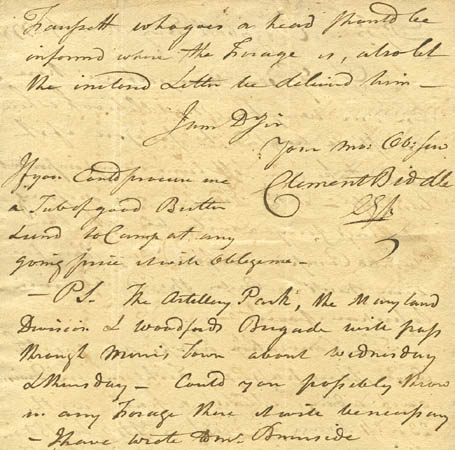 who goes a head should be
informed where the Forage is, also let
the inclosd Letter be deliverd him —
I am D Sir
Your mo: Ob: Ser
Clement Biddle
If you Could procure me
a Tub of good Butter
& send to Camp at any
going price it will Oblige me. —
— PS. The Artillery Park, the Maryland
Division & Woodfords Brigade will pass
through Morris Town about Wednesday
& Thursday — Could you possibly throw
in any Forage there it will be necessary
— I have wrote to Mr. Burnside